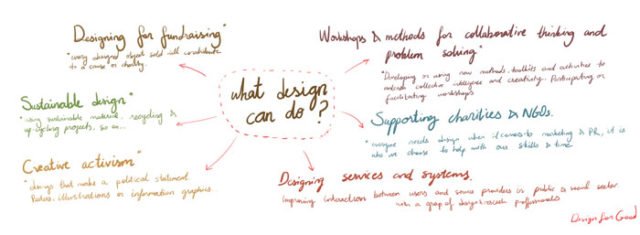 Designing for fundraising"
"every designed object sold will contribute
to a cause or charity.
Sustainable design"
"using sustainable material, recycling &
up-cycling projects, so on...
Creative activism"
"designs that make a political statement
Posters, illustrations or information graphics.
what design
can do?
Workshops & methods for collaborative thinking and
problem solving"
"Developing or using new methods, toolkits and activities to
collective intelligence and creativity. Participating or
facilitating workshops
Supporting charities & NGOs.
"everyone needs design when it comes to marketing & PR, it is
who we choose to help with our skills & time.
Designing services and systems.
Improving interaction between users and service providers in public or social sector
with a group of design & research professionals
Design for Good